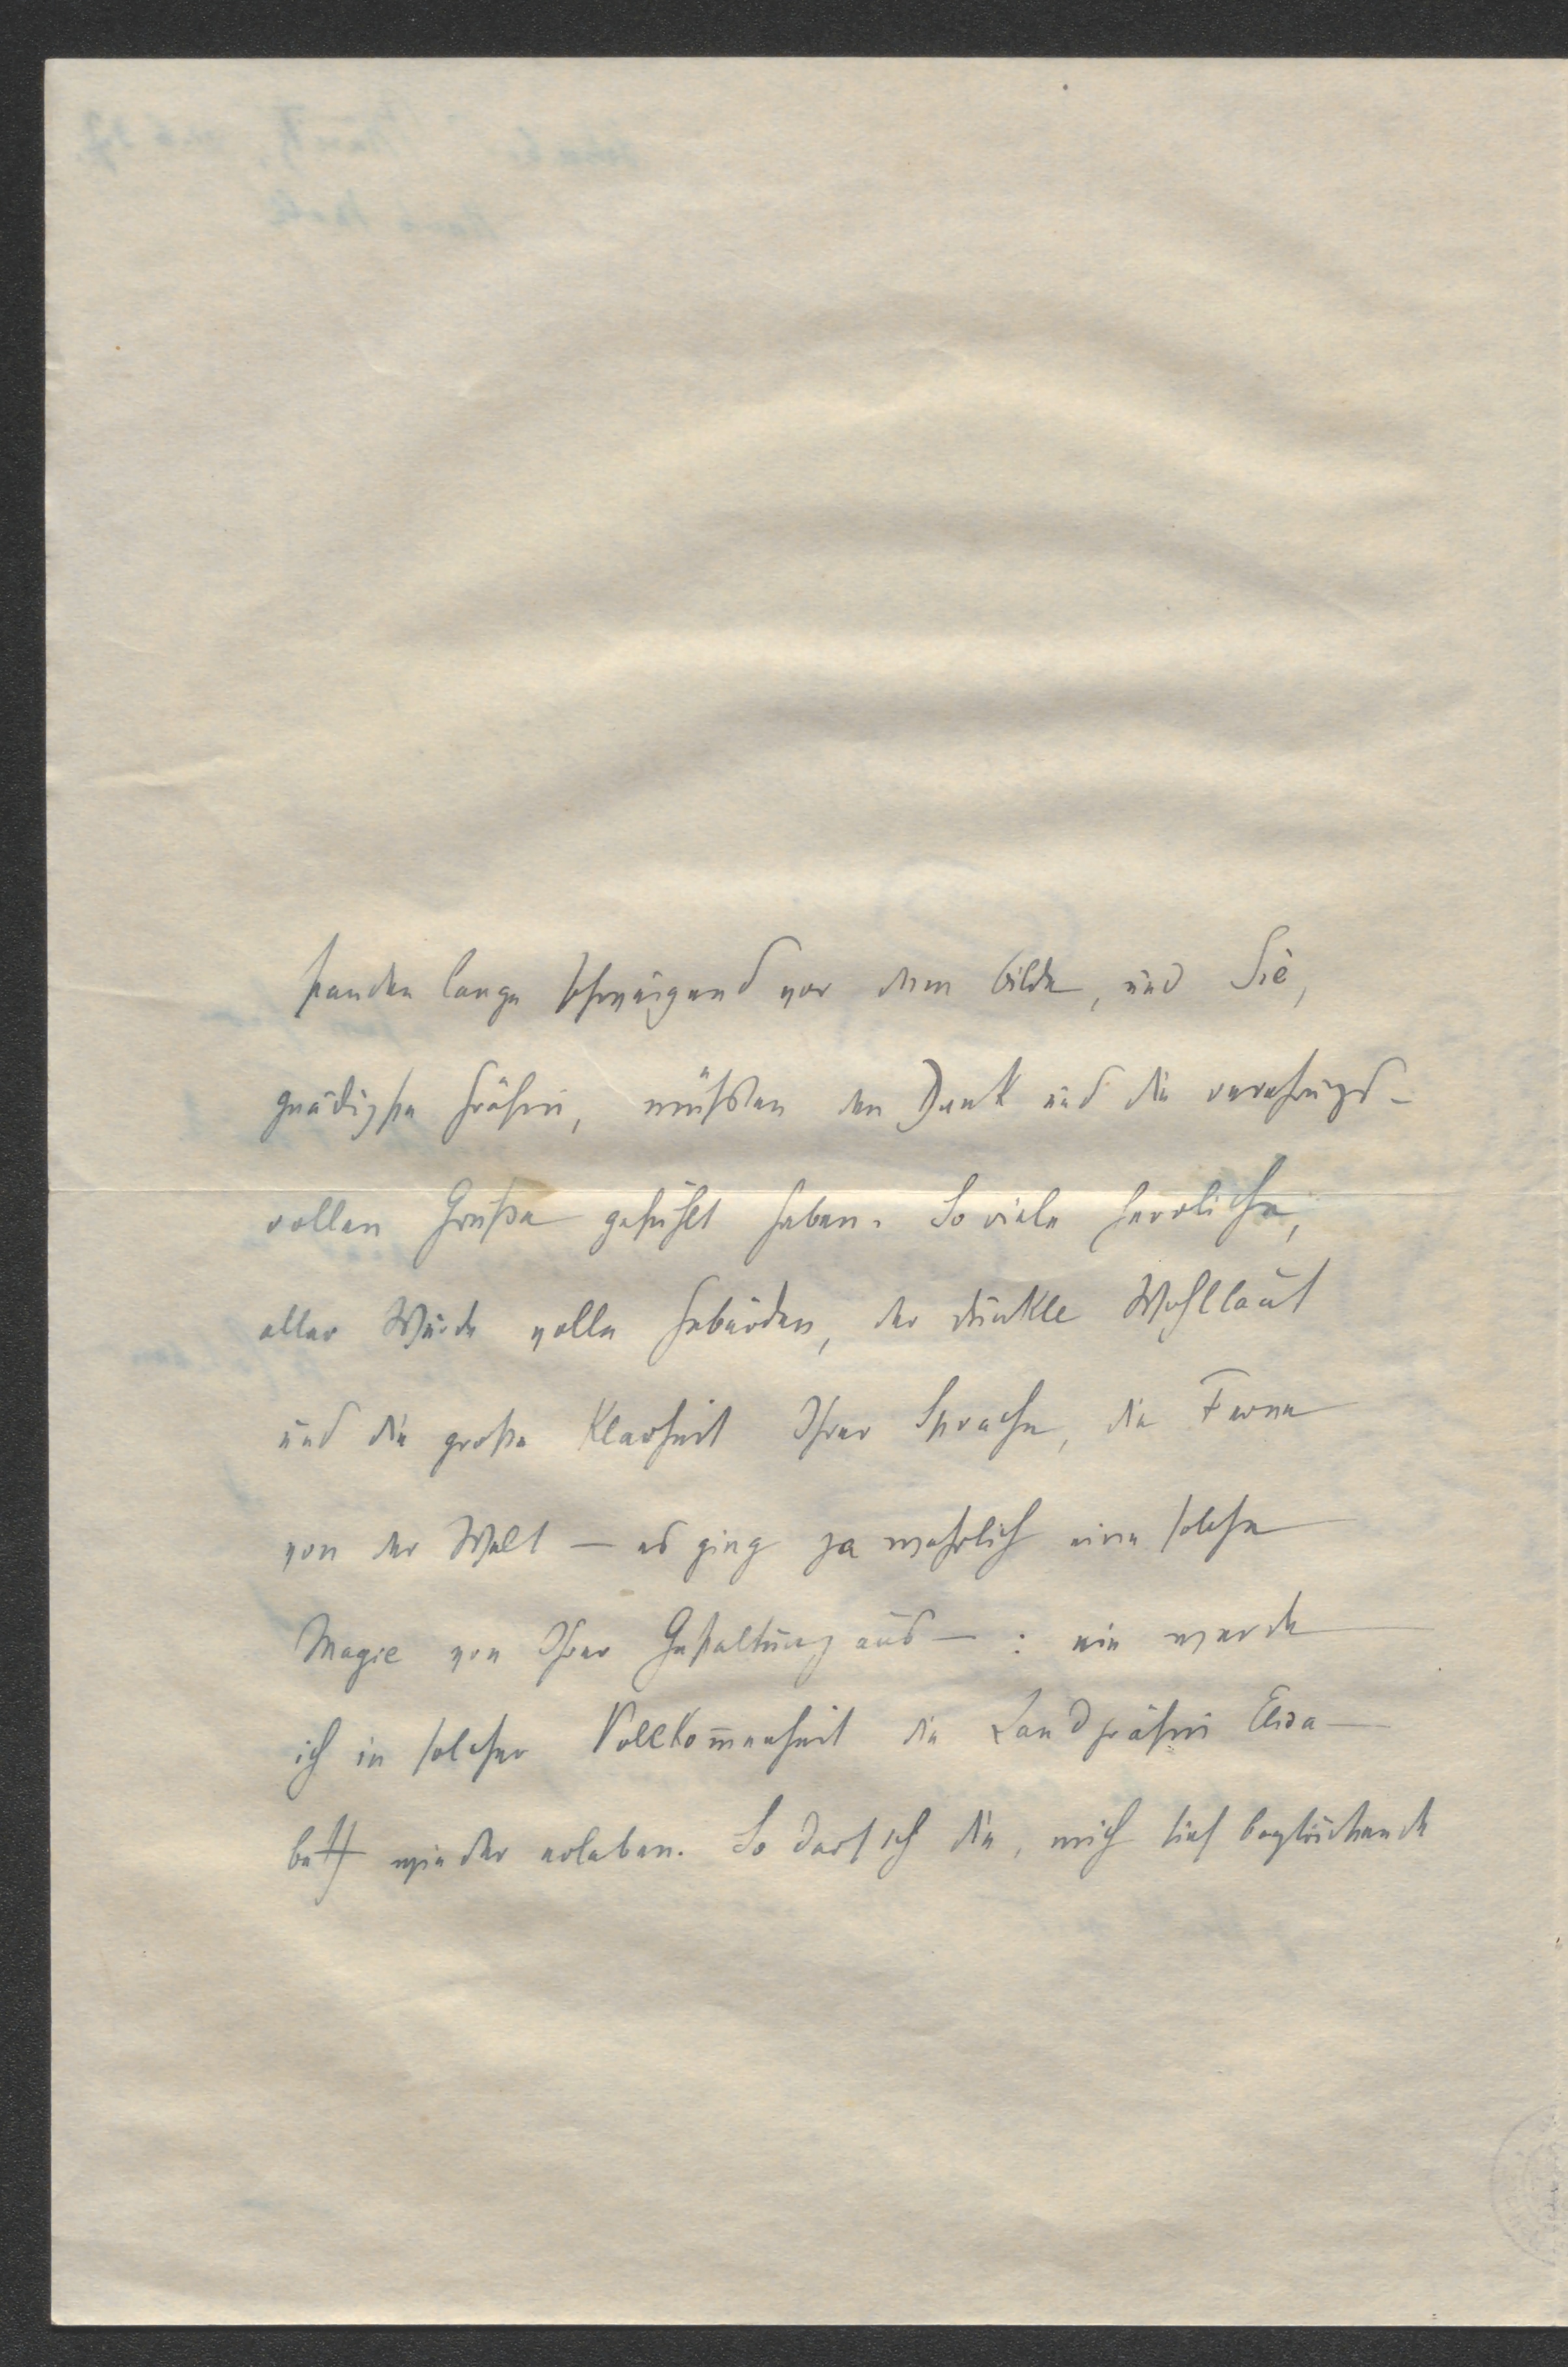 standen lange schweigend vor dem Bilde, und Sie,
gnädigste Gräfin, müssten den Dank und die verehrungs-
vollen Grüße gefühlt haben. So viele herrliche,
aller Würde volle Gebärden, der dunkle Wohllaut
und die große Klarheit Ihrer Sprache, die Ferne
von der Welt – es ging ja wahrlich eine solche
Magie von Ihrer Gestaltung aus – : nie werde
ich in solcher Vollkom̅enheit die Landgräfin Elisa-
beth wieder erleben. So darf ich die, mich tief beglückende